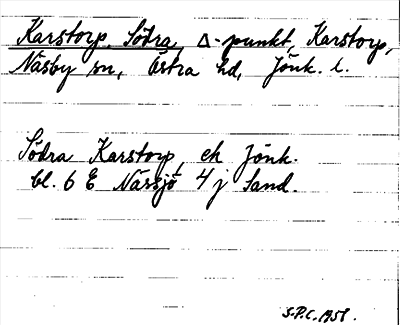 Karstorp, Södra, Δ-punkt, Karstorp,
Näsby sn, Östra hd, Jönk. l.
Södra Karstorp, ek Jönk.
bl. 6 E Nässjö 4 j Sand.
S.P.C. 1958.